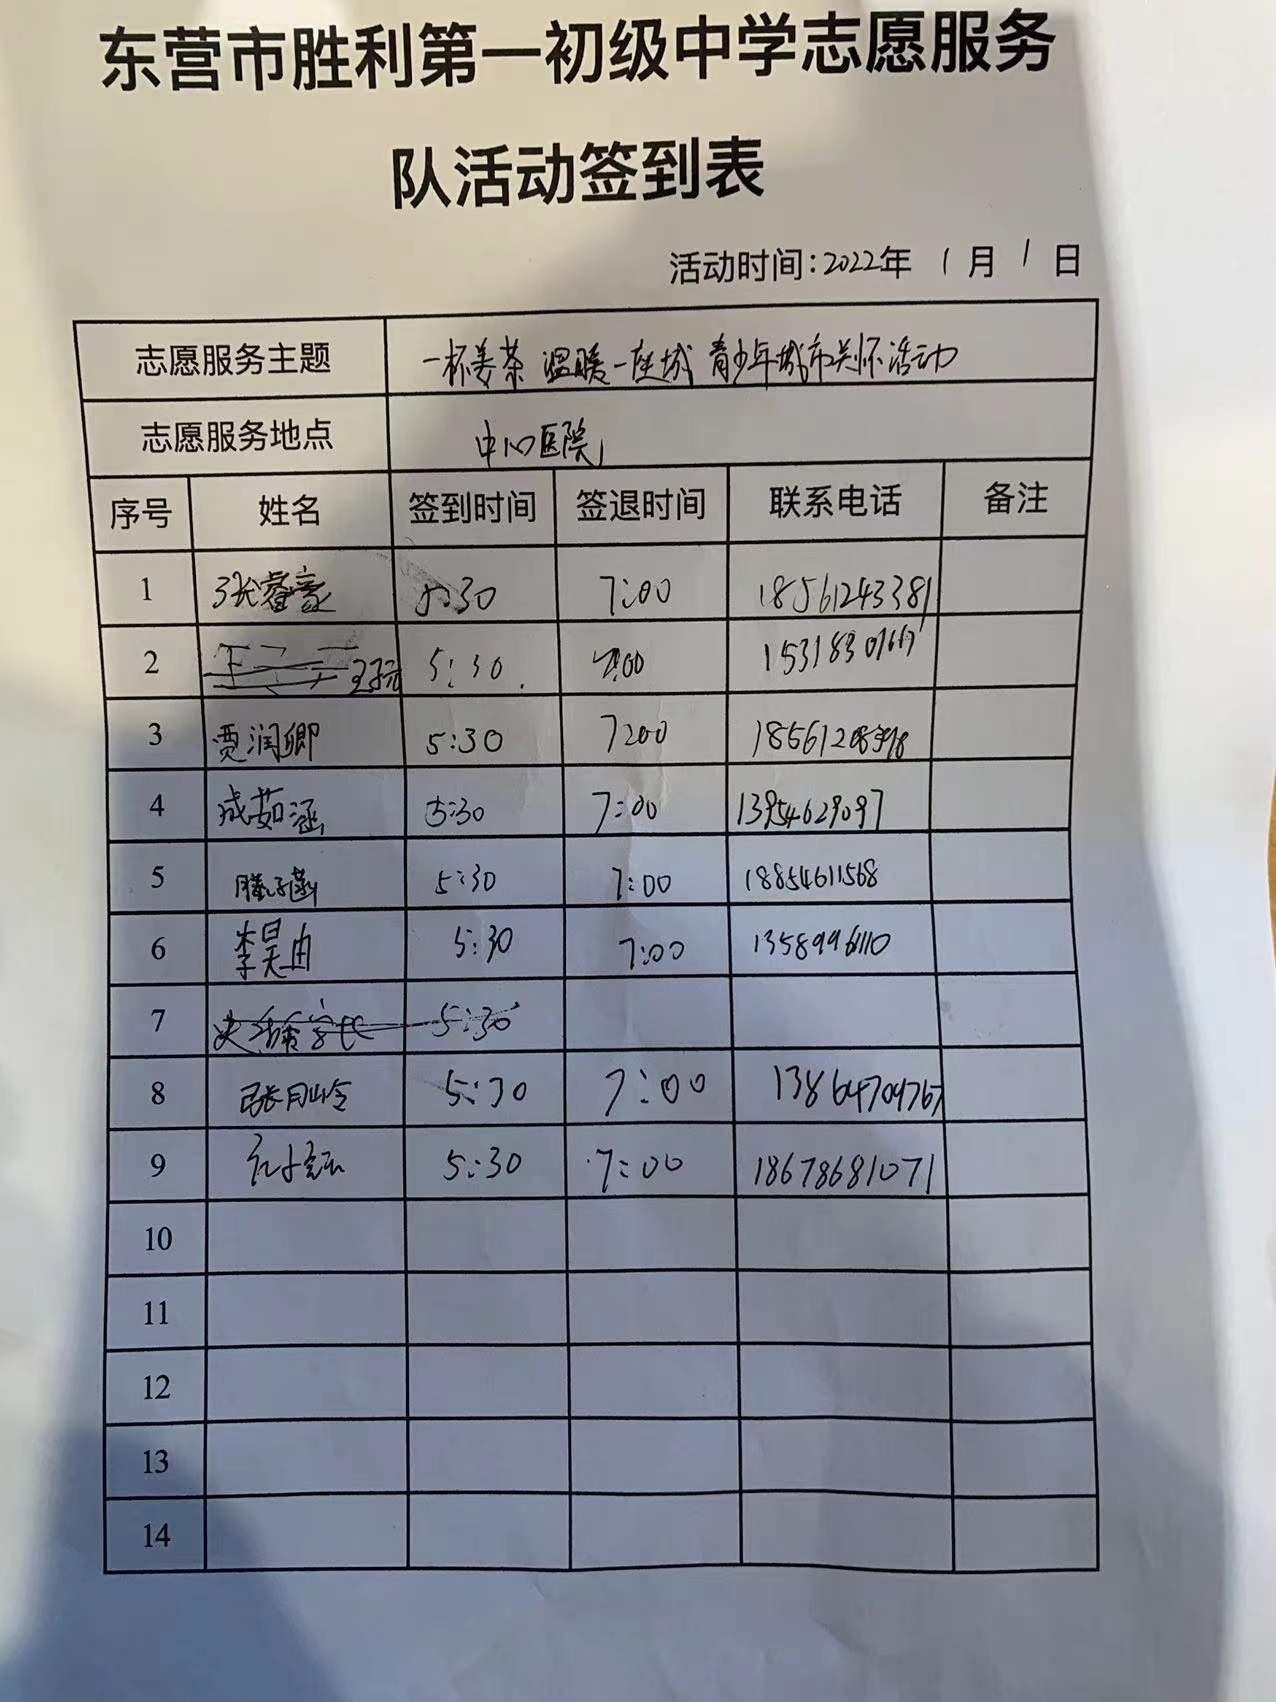 东营市胜利第一初级中学志愿服务
队活动签到表
活动时间:2022年 1月 1日
志愿服务主题 一杯姜茶 温暖一座城 青少年城市关怀活动
志愿服务地点 中心医院
序号 姓名 签到时间 签退时间 联系电话 备注
1 张睿豪 5:30 7:00 18561243381
2 5:30 7:00
3 贾润卿 5:30 7:00
4 成茹涵 5:30 7:00 13954629097
5 滕子菡 5:30 7:00 18854611568
6 李昊由 5:30 7:00
7 5:30
8 张月岭 5:30 7:00 13864704767
9 5:30 7:00 18678681071
10
11
12
13
14